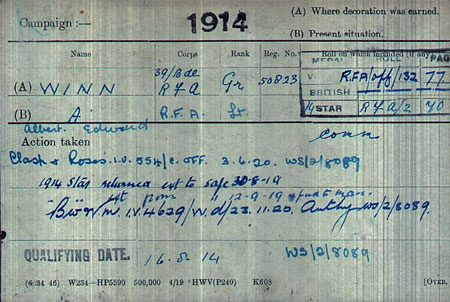 Campaign :— 1914 (A) Where decoration was earned.
(B) Present situation.
Name Corps Rank Reg. No. Roll on which included (if any)
MEDAL ROLL PAGE
(A) WINN 39/Bde R F A Gr 50823 V. R.F.A/off/132 77
BRITISH
19 STAR R F A/2 70
(B) A. R.F.A. Lt.
Albert Edward
Action taken Comm
Clasp & Roses. I.V. 554/E. OFF. 3.6.20. WS/2/8089
1914 Star returned 30-8-19
12-9-19
B W V M. I.V. 4629/W.d/23.11.20. Authy WS/2/8089.
QUALIFYING DATE. 16.8.14 WS/2/8089
(6:34 46) W234—HP5590 500,000 4/19 HWV(P240) K608 [OVER.